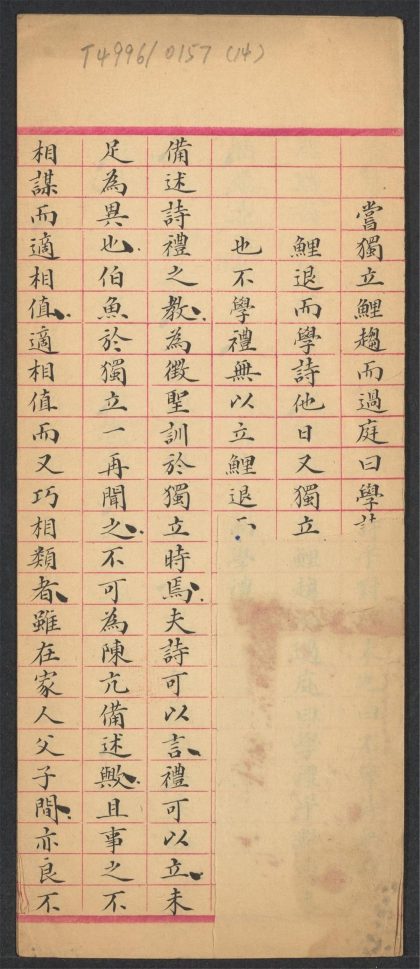 T4996/0157 (14)
嘗獨立鯉趨而過庭曰學
鯉退而學詩他日又獨立
也不學禮無以立鯉退
備述詩禮之教為徵聖訓於獨立時焉夫詩可以言禮可以立未
足為異也伯魚於獨立一再聞之不可為陳亢備述歟且事之不
相謀而適相值適相值而又巧相類者雖在家人父子間亦良不